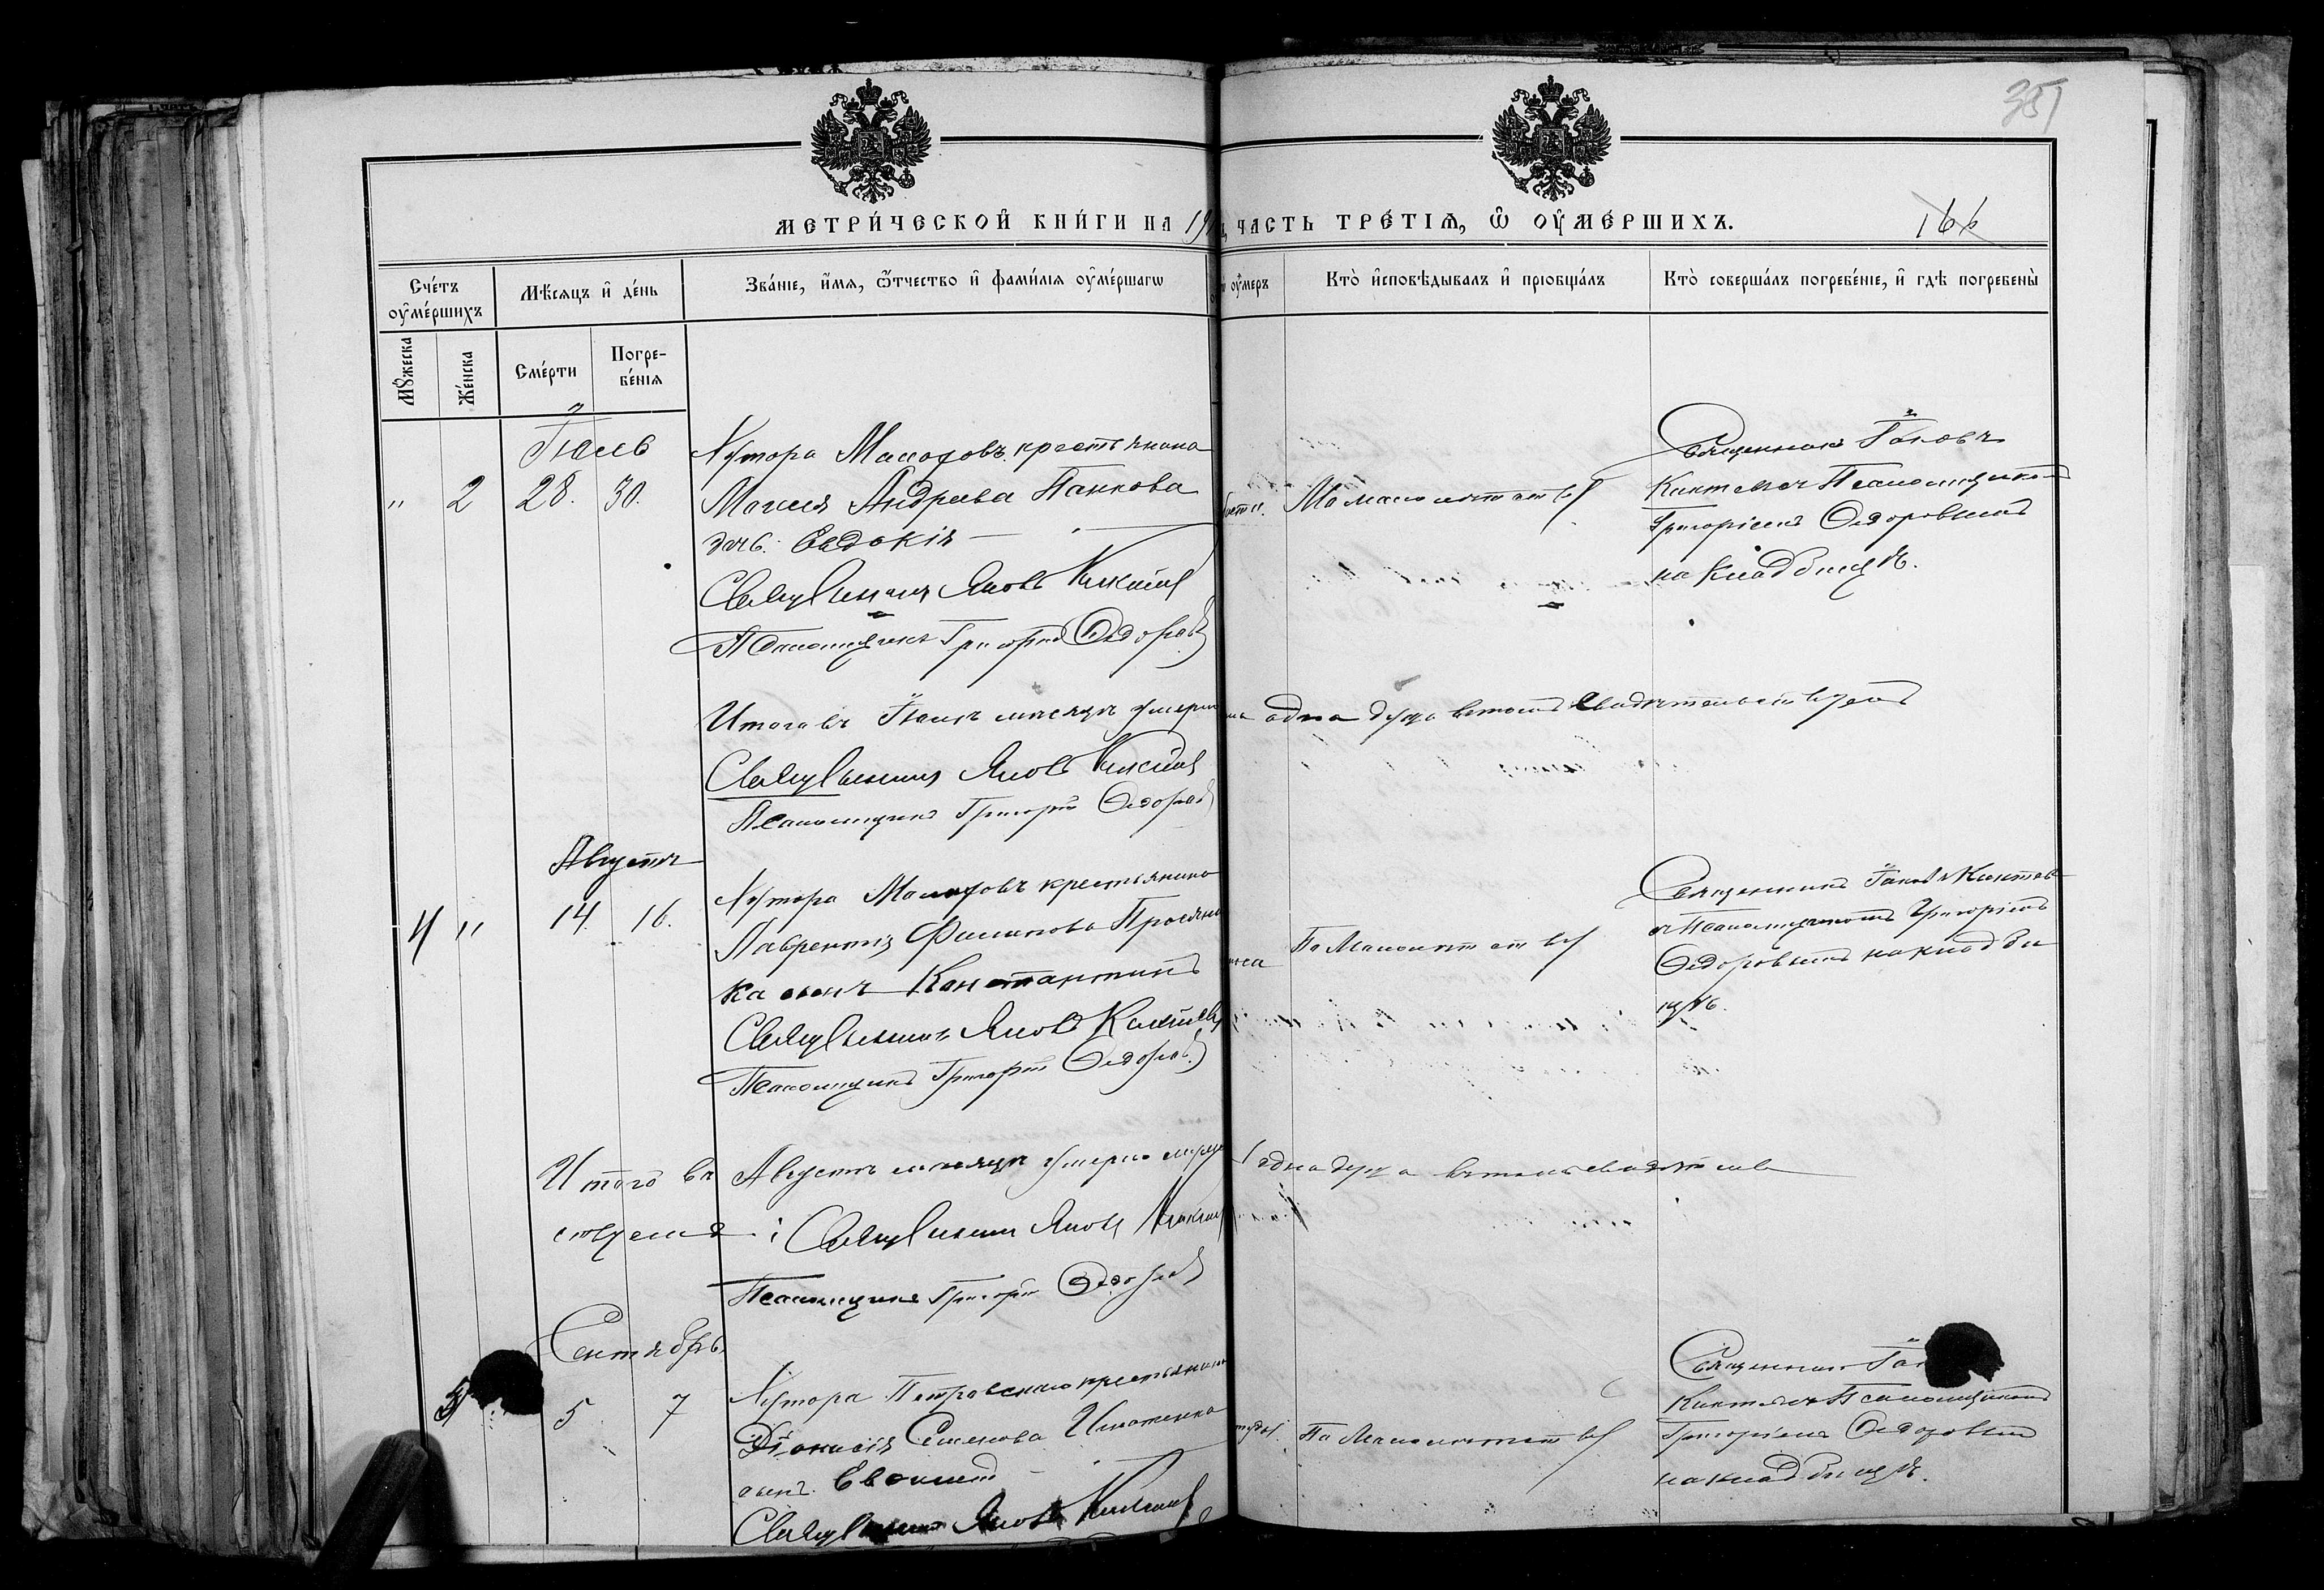 351
МЕТРИ́ЧЕСКОЙ КНИ́ГИ НА 19
ЧАСТЬ ТРЕ́ТІѦ, Ѿ ОУМЕ́РШИХЪ.
166
Сче́тъ оуме́ршихъ
Мѣ́сяцъ и де́нь
Зва́ніе, и́мя, о́тчество и фами́лія оуме́ршагѡ
оумеръ
Кто̀ исповѣ́дывалъ и пріобща́лъ
Кто̀ соверша́лъ погребе́ніе, и гдѣ̀ погребены̀
Мꙋжеска
Же́нска
Сме́рти
Погре-
бе́нія
Іюль
" 2 28. 30.
Хутора крестьянина
Моисея Андреева Панкова
дочь Евдокія
Священникъ Яковъ
Псаломщикъ Григорій Ѳедоровъ
По малолѣтству
Священникъ Іаковъ
Псаломщико
Григоріемъ Ѳедоровымъ
на кладбищѣ.
Итого въ Іюлѣ мѣсяцѣ умерла одна душа въ томъ свидѣтельствуемъ
Священникъ Яковъ
Псаломщикъ Григорій Ѳедоровъ
Августъ
4 " 14. 16.
Хутора крестьянина
Лаврентія Филипова
ка сынъ Константинъ
Священникъ Яковъ
Псаломщикъ Григорій Ѳедоровъ
По малолѣтству
Священникъ Іаковъ
съ Псаломщикомъ Григоріемъ
Ѳедоровымъ на кладби
щѣ.
Итого въ Августѣ мѣсяцѣ умерло одна душа въ томъ свидѣтель
ствуемъ: Священникъ Яковъ
Псаломщикъ Григорій Ѳедоровъ
Сентябрь
5 5 7
Хутора Петровскаго крестьянина
Діонисія Семенова
сынъ
Священникъ Яковъ
По малолѣтству
Священникъ
Псаломщикомъ
Григоріемъ Ѳедоровымъ
на кладбищѣ.